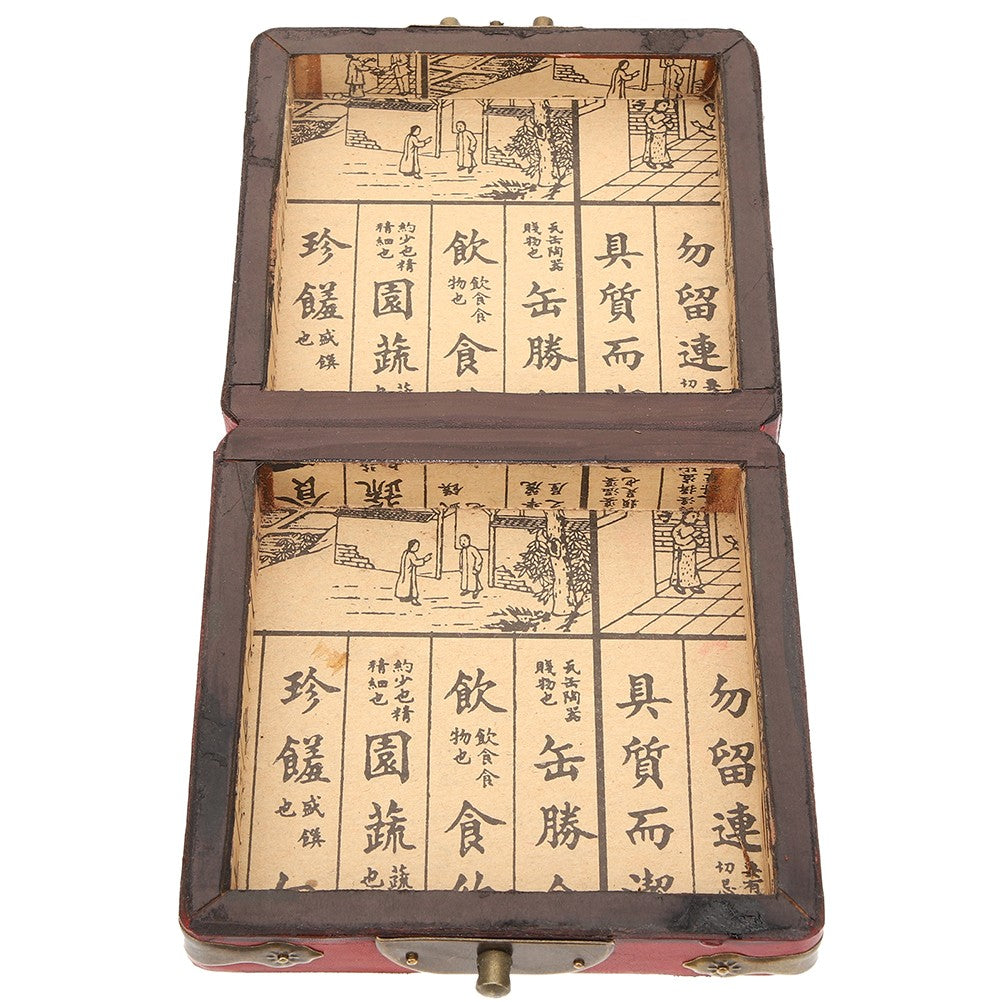 勿留連
切
具質而潔
瓦缶陶器
賤物也
缶勝
飲
飲食食
物也
食
約少也精
精細也
園蔬
蔬
也
珍饈
盛饌
也
食
蔬
勿留連
切忌
具質而潔
瓦缶陶器
賤物也
缶勝
飲
飲食食
物也
食
約少也精
精細也
園蔬
蔬
也
珍饈
盛饌
也